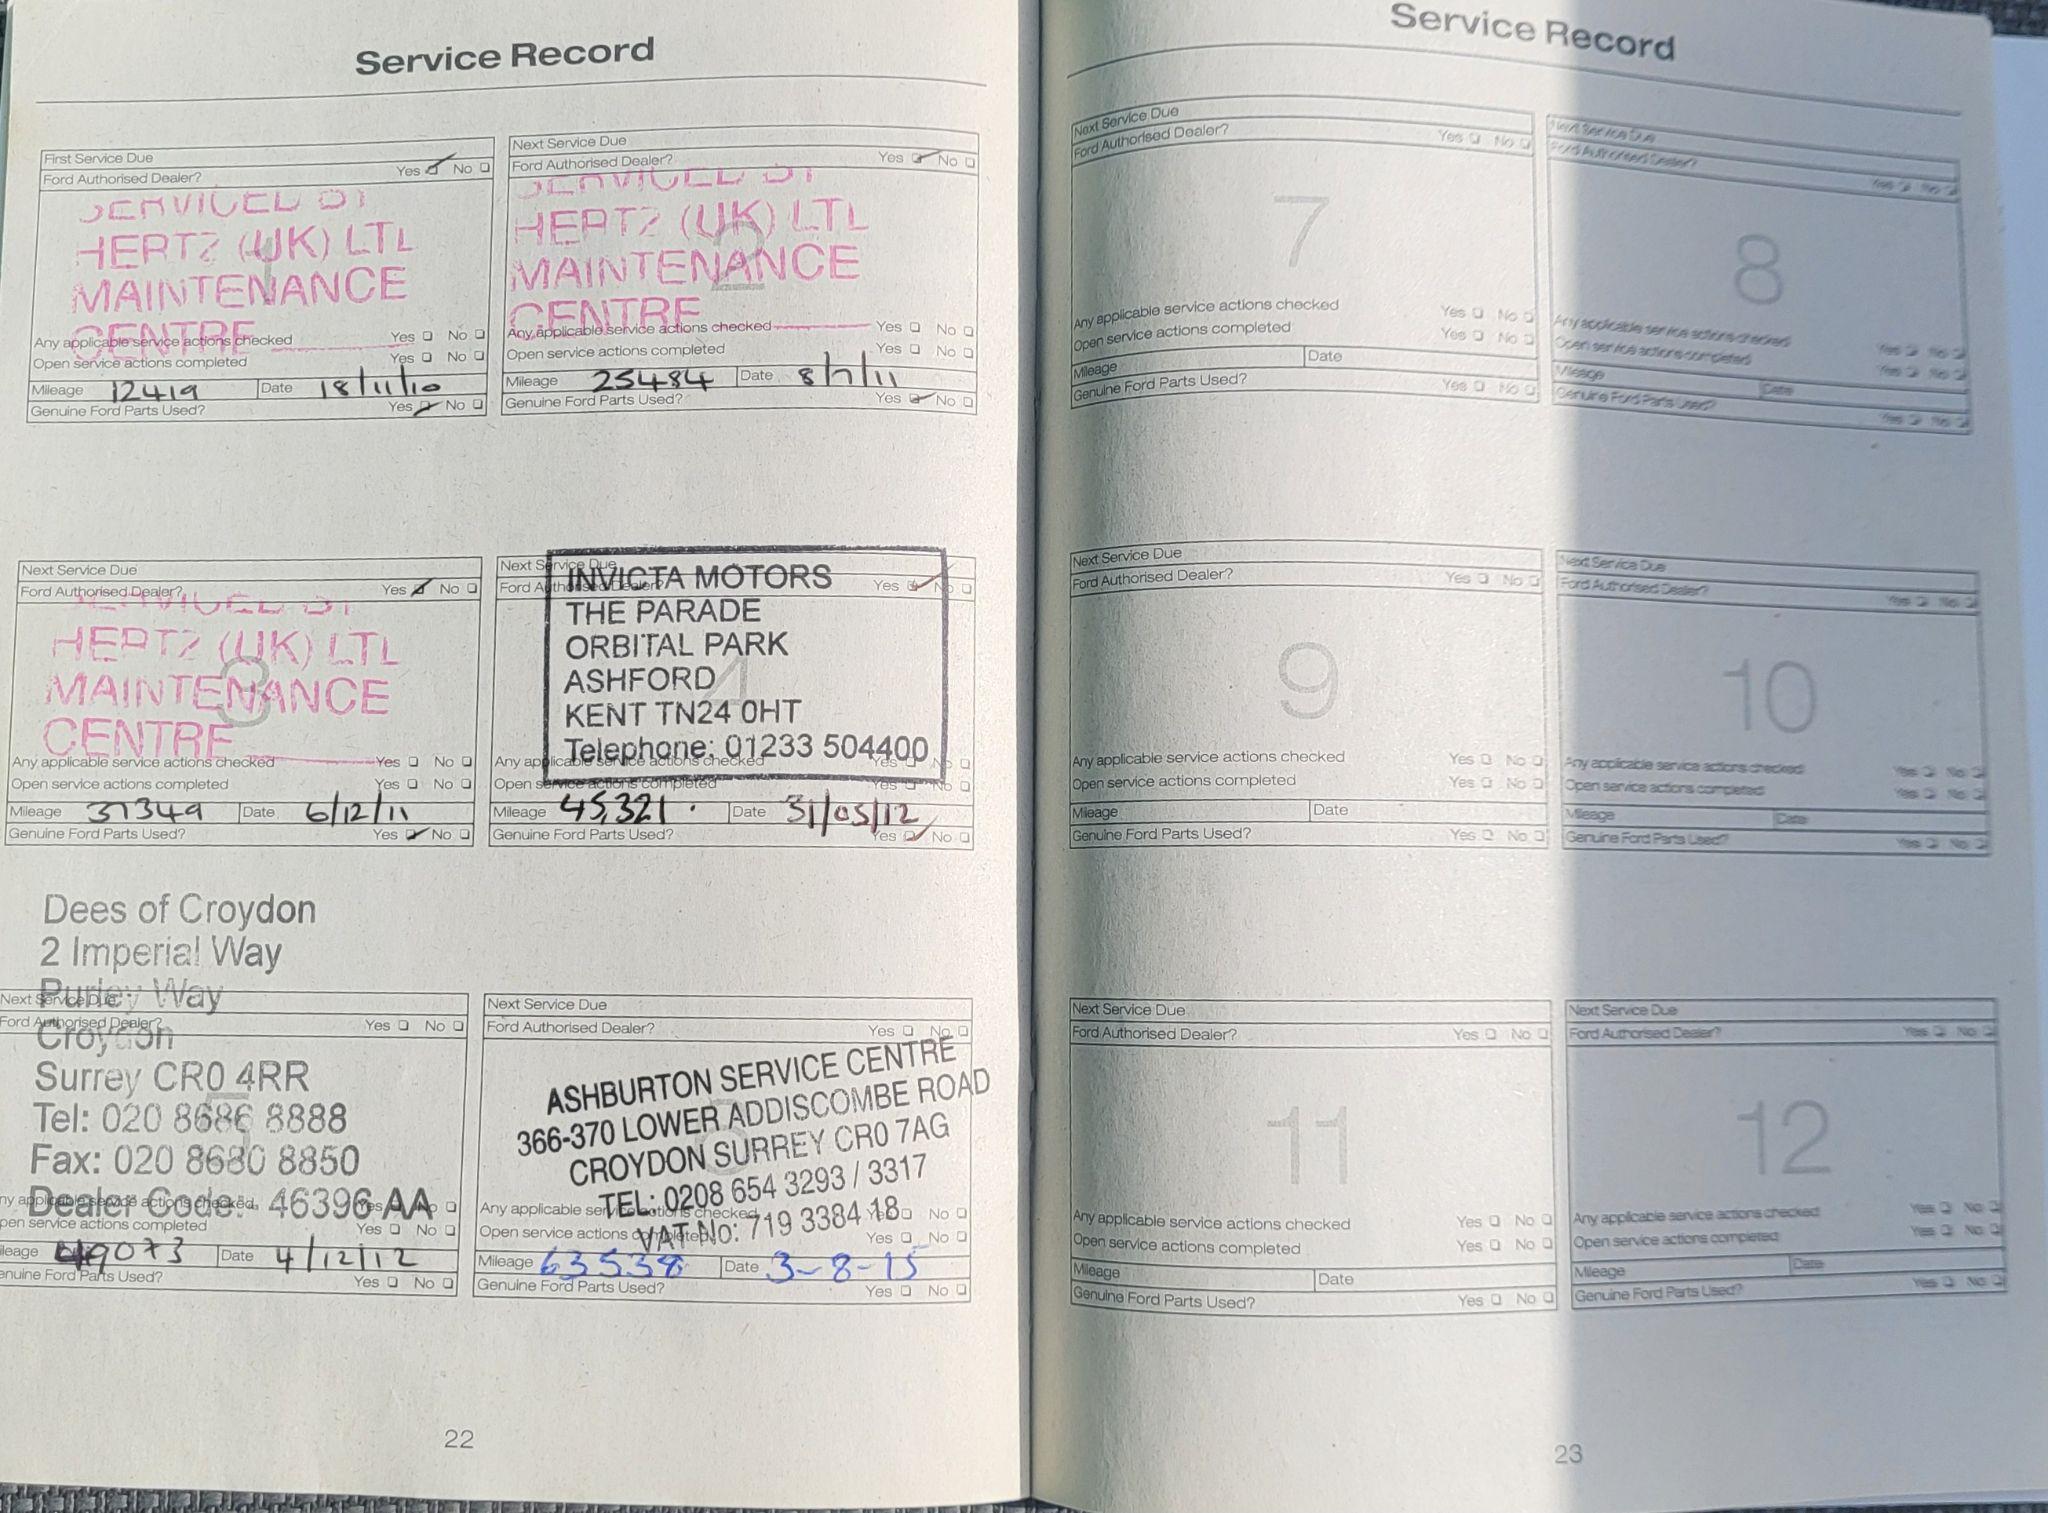 Service Record
First Service Due
Ford Authorised Dealer? Yes No
SERVICED BY
HERTZ (UK) LTD
MAINTENANCE
CENTRE
1
Any applicable service actions checked Yes No
Open service actions completed Yes No
Mileage 12419 Date 18/11/10
Genuine Ford Parts Used? Yes No
Next Service Due
Ford Authorised Dealer? Yes No
SERVICED BY
HERTZ (UK) LTD
MAINTENANCE
CENTRE
2
Any applicable service actions checked Yes No
Open service actions completed Yes No
Mileage 25484 Date 8/7/11
Genuine Ford Parts Used? Yes No
Next Service Due
Ford Authorised Dealer? Yes No
SERVICED BY
HERTZ (UK) LTD
MAINTENANCE
CENTRE
3
Any applicable service actions checked Yes No
Open service actions completed Yes No
Mileage 37349 Date 6/12/11
Genuine Ford Parts Used? Yes No
Next Service Due
Ford Authorised Dealer? Yes No
INVICTA MOTORS
THE PARADE
ORBITAL PARK
ASHFORD
KENT TN24 0HT
Telephone: 01233 504400
4
Any applicable service actions checked Yes No
Open service actions completed Yes No
Mileage 45,321. Date 31/05/12
Genuine Ford Parts Used? Yes No
Dees of Croydon
2 Imperial Way
Purley Way
Croydon
Surrey CR0 4RR
Tel: 020 8686 8888
Fax: 020 8680 8850
Dealer Code: 46396 AA
Next Service Due
Ford Authorised Dealer? Yes No
5
ny applicable service actions checked Yes No
pen service actions completed Yes No
ileage 49073 Date 4/12/12
enuine Ford Parts Used? Yes No
Next Service Due
Ford Authorised Dealer? Yes No
ASHBURTON SERVICE CENTRE
366-370 LOWER ADDISCOMBE ROAD
CROYDON SURREY CR0 7AG
TEL: 0208 654 3293 / 3317
VAT No: 719 3384 18
6
Any applicable service actions checked Yes No
Open service actions completed Yes No
Mileage 63538 Date 3-8-15
Genuine Ford Parts Used? Yes No
22
Service Record
Next Service Due
Ford Authorised Dealer? Yes No
7
Any applicable service actions checked Yes No
Open service actions completed Yes No
Mileage Date
Genuine Ford Parts Used? Yes No
Next Service Due
Ford Authorised Dealer? Yes No
8
Any applicable service actions checked Yes No
Open service actions completed Yes No
Mileage Date
Genuine Ford Parts Used? Yes No
Next Service Due
Ford Authorised Dealer? Yes No
9
Any applicable service actions checked Yes No
Open service actions completed Yes No
Mileage Date
Genuine Ford Parts Used? Yes No
Next Service Due
Ford Authorised Dealer? Yes No
10
Any applicable service actions checked Yes No
Open service actions completed Yes No
Mileage Date
Genuine Ford Parts Used? Yes No
Next Service Due
Ford Authorised Dealer? Yes No
11
Any applicable service actions checked Yes No
Open service actions completed Yes No
Mileage Date
Genuine Ford Parts Used? Yes No
Next Service Due
Ford Authorised Dealer? Yes No
12
Any applicable service actions checked Yes No
Open service actions completed Yes No
Mileage Date
Genuine Ford Parts Used? Yes No
23